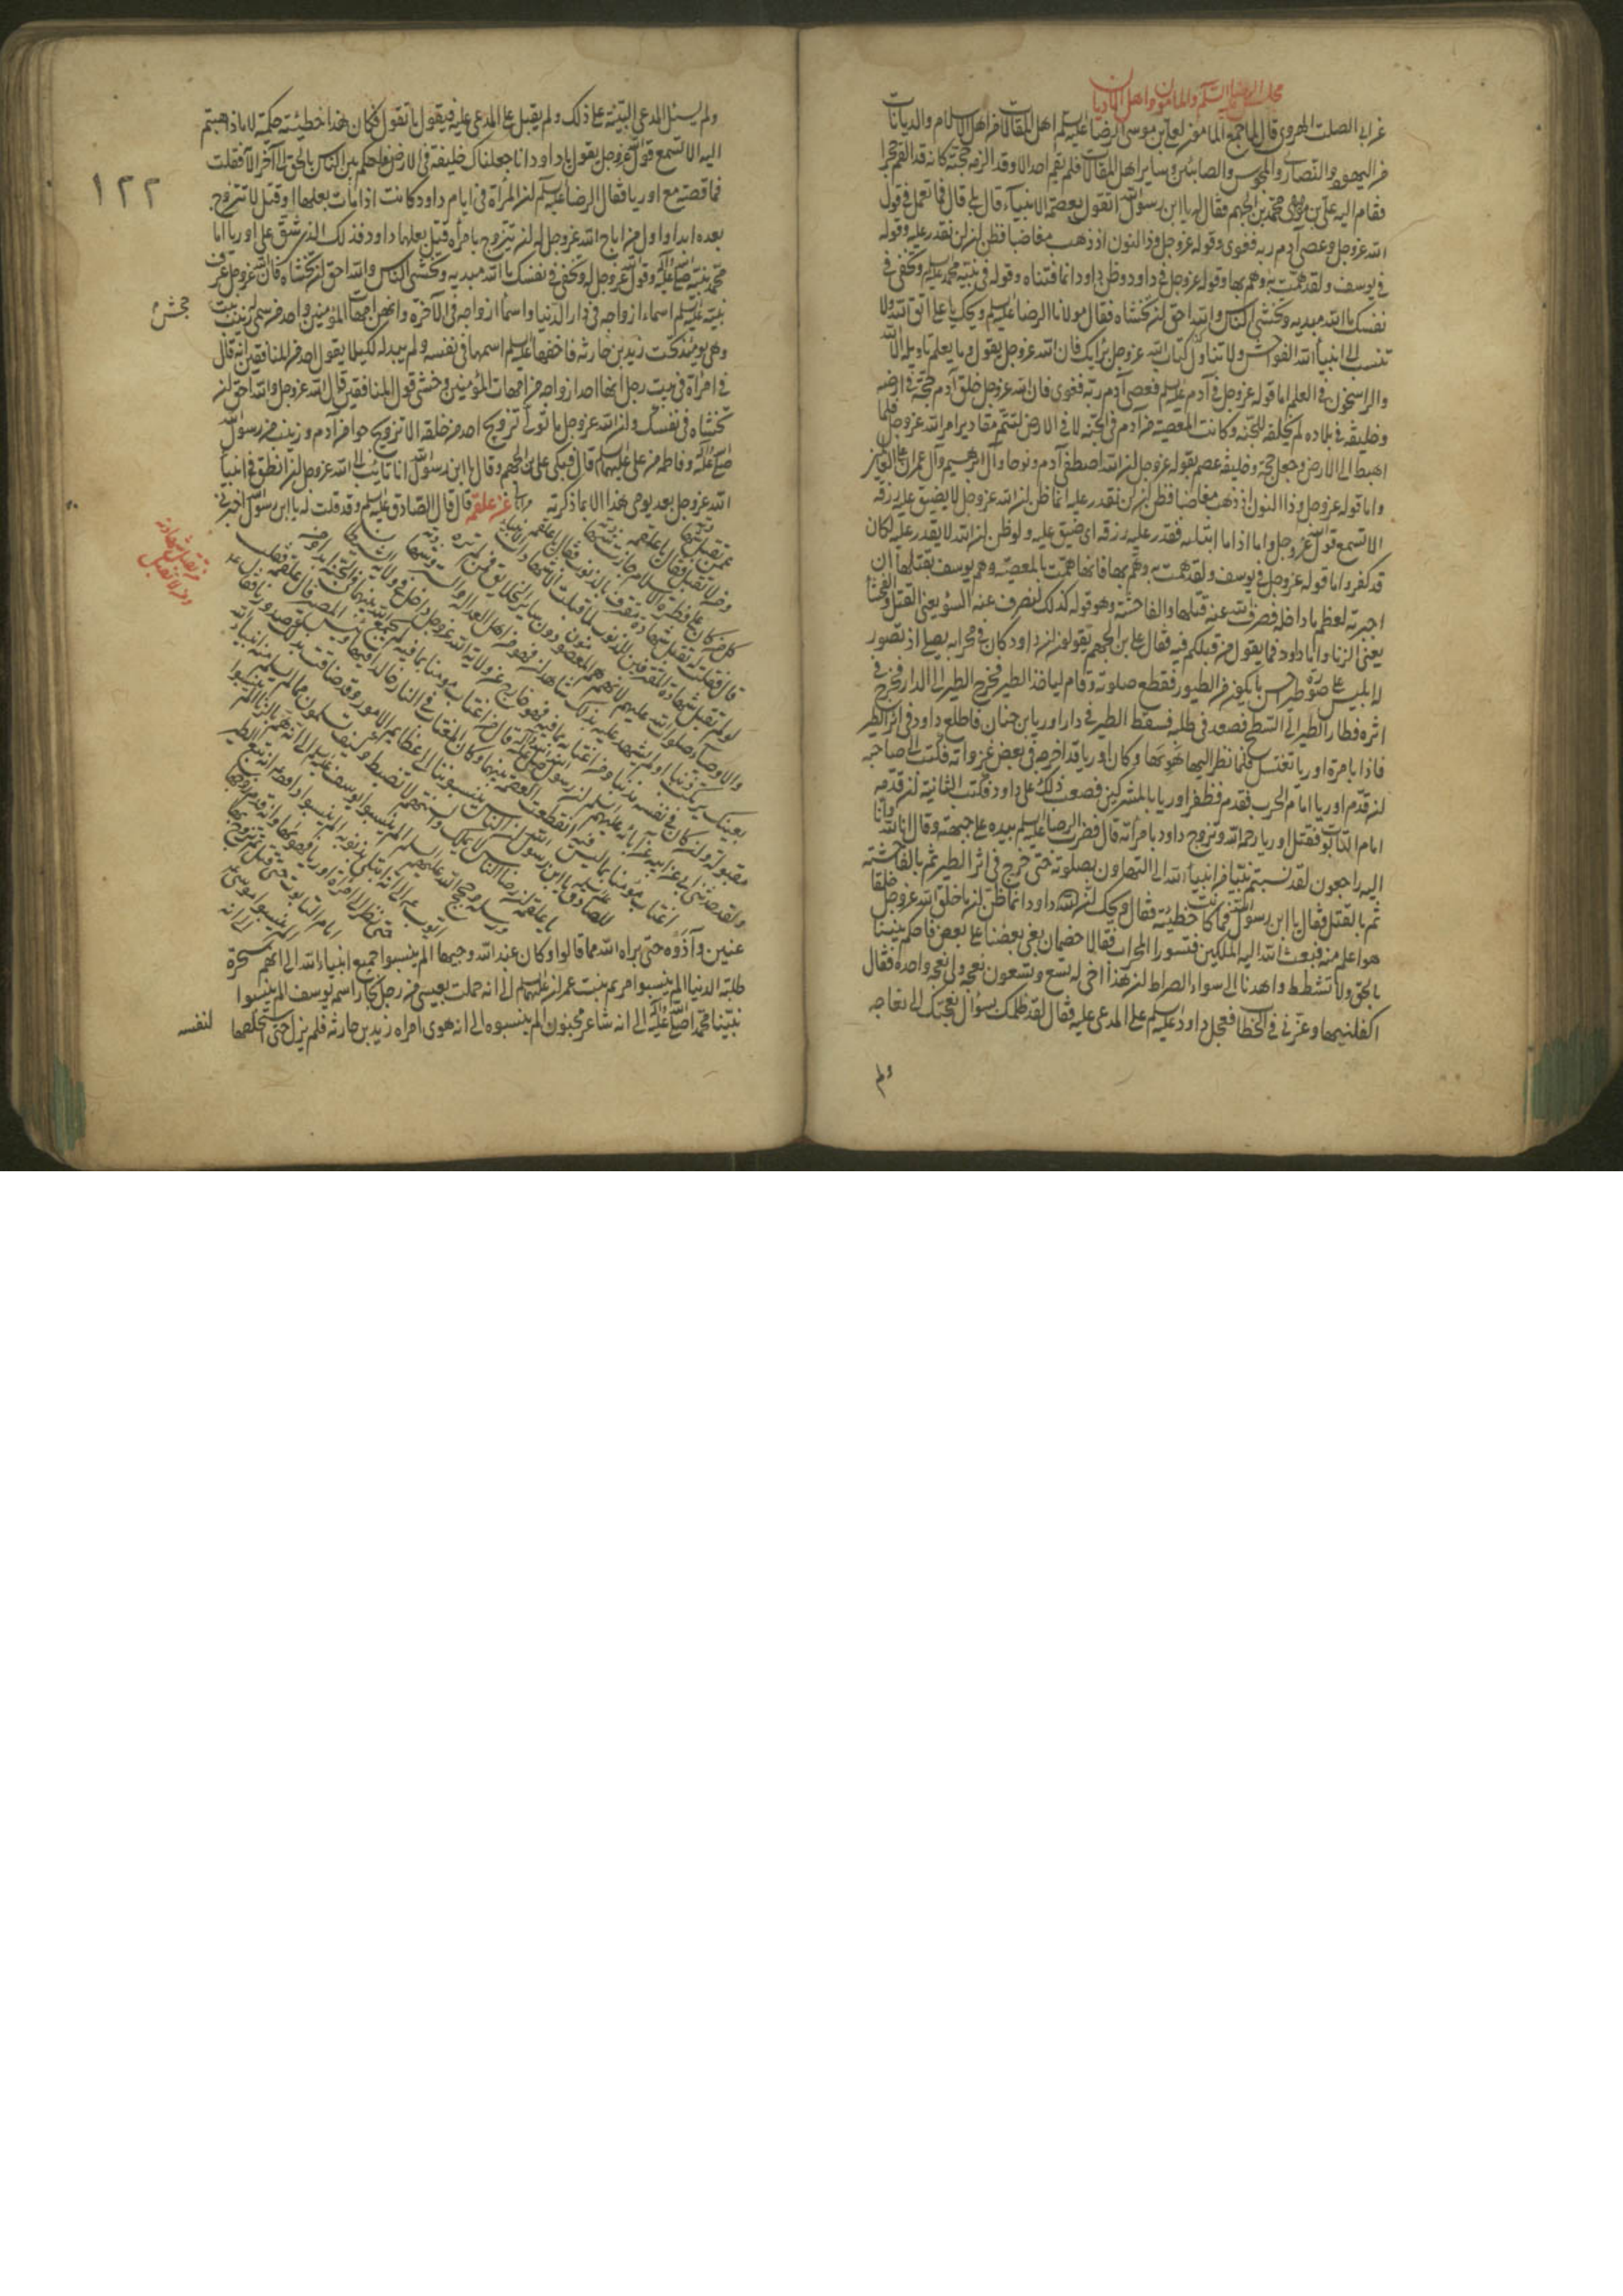 مجلس الرضا عليه السلم والمامون واهل الاديان
عن ابى الصلت الهروى قال لما جمع المامون لعلى بن موسى الرضا عليه سلم اهل المقالات من اهل الاسلام والديانات
من اليهود والنصارى والمجوس والصابئين وساير اهل المقالات فلم يقم احد الا وقد الزم حجته كانه قد القم حجرا
فقام اليه على بن محمد بن الجهم فقال له يا ابن رسول الله اتقول بعصمة الانبياء قال بلى قال فما تعمل فى قول
الله عز وجل وعصى آدم ربه فغوى وقوله عز وجل وذا النون اذ ذهب مغاضبا فظن ان لن نقدر عليه وقوله
فى يوسف ولقد همت به وهم بها وقوله عز وجل فى داود وظن داود انما فتناه وقوله فى نبيه محمد عليه سلم وتخفى فى
نفسك ما الله مبديه وتخشى الناس والله احق ان تخشاه فقال مولانا الرضا عليه سلم ويحك يا على اتق الله ولا
تنسب الى انبياء الله الفواحش ولا تتاول كتاب الله عز وجل برايك فان الله عز وجل يقول وما يعلم تاويله الا الله
والراسخون فى العلم اما قوله عز وجل فى آدم عليه سلم فعصى آدم ربه فغوى فان الله عز وجل خلق آدم حجة فى ارضه
وخليفة فى بلاده لم يخلقه للجنة وكانت المعصية من آدم فى الجنة لا فى الارض لتتم مقادير امر الله عز وجل فلما
اهبط الى الارض وجعل حجة وخليفة عصم بقوله عز وجل ان الله اصطفى آدم ونوحا وآل ابرهيم وآل عمران على العالمين
واما قوله عز وجل وذا النون اذ ذهب مغاضبا فظن ان لن نقدر عليه انما ظن ان الله عز وجل لا يضيق عليه رزقه
الا تسمع قول الله عز وجل واما اذا ما ابتليه فقدر عليه رزقه اى ضيق عليه ولو ظن ان الله لا يقدر عليه لكان
قد كفر واما قوله عز وجل فى يوسف ولقد همت به وهم بها فانها همت بالمعصية وهم يوسف بقتلها ان
اجبرته لعظم ما داخله فصرف الله عنه قتلها والفاحشة وهو قوله كذلك لنصرف عنه السوء يعنى القتل والفحشا
يعنى الزنا واما داود فما يقول من قبلكم فيه فقال على بن الجهم يقولون ان داود كان فى محرابه يصلى اذ تصور
له ابليس على صورة طير احسن ما يكون من الطيور فقطع صلوته وقام لياخذ الطير فخرج الطير الى الدار فخرج فى
اثره فطار الطير الى السطح فصعد فى طلبه فسقط الطير فى دار اوريا بن حنان فاطلع داود فى اثر الطير
فاذا بامرة اوريا تغتسل فلما نظر اليها هويها وكان اوريا قد اخرجه فى بعض غزواته فكتب الى صاحبه
ان قدم اوريا امام الحرب فقدم فظفر اوريا بالمشركين فصعب ذلك على داود فكتب الثانية ان قدمه
امام التابوت فقتل اوريا رحمه الله وتزوج داود بامراته قال فضرب الرضا عليه سلم بيده على جبهته وقال انا لله وانا
اليه راجعون لقد نسبتم نبيا من انبياء الله الى التهاون بصلوته حتى خرج فى اثر الطير ثم بالفاحشة
ثم بالقتل فقال يا ابن رسول الله فما كانت خطيئته فقال ويحك ان داود انما ظن ان ما خلق الله عز وجل خلقا
هو اعلم منه فبعث الله اليه الملكين فتسورا المحراب فقالا خصمان بغى بعضنا على بعض فاحكم بيننا
بالحق ولا تشطط واهدنا الى سواء الصراط ان هذا اخى له تسع وتسعون نعجة ولى نعجة واحدة فقال
اكفلنيها وعزنى فى الخطاب فعجل داود عليه سلم على المدعى عليه فقال لقد ظلمك بسؤال نعجتك الى نعاجه
ولم
١٢٢
ولم يسئل المدعى البينة على ذلك ولم يقبل على المدعى عليه فيقول ما تقول فكان هذا خطيئة حكمه لا ما ذهبتم
اليه الا تسمع قول الله عز وجل يقول يا داود انا جعلناك خليفة فى الارض فاحكم بين الناس بالحق الى آخر الآ فقلت
فما قصته مع اوريا فقال الرضا عليه سلم ان المراة فى ايام داود كانت اذا مات بعلها او قتل لا تتزوج
بعده ابدا واول من اباح الله عز وجل له ان يتزوج بامراة قتل بعلها داود فذلك الذى شق على اوريا اما
محمد نبيه صلى الله عليه وآله وقول الله عز وجل له وتخفى فى نفسك ما الله مبديه وتخشى الناس والله احق ان تخشاه فان الله عز وجل عرف
نبيه عليه سلم اسماء ازواجه فى دار الدنيا واسماء ازواجه فى الآخرة وانهن امهات المؤمنين واحد من سمى له زينب بنت
جحش
وهى يومئذ تحت زيد بن حارثه فاخفى عليه سلم اسمها فى نفسه ولم يبده لكيلا يقول احد من المنافقين انه قال
فى امراة فى بيت رجل انها احد ازواجه من امهات المؤمنين وخشى قول المنافقين قال الله عز وجل والله احق ان
تخشاه فى نفسك وان الله عز وجل ما تولى تزويج احد من خلقه الا تزويج حوا من آدم وزينب من رسول الله
صلى الله عليه وآله وفاطمة من على عليهما سلم قال فبكى على بن الجهم وقال يا ابن رسول الله انا تائب الى الله عز وجل ان انطق فى انبياء
الله عز وجل بعد يومى هذا الا بما ذكرته عن علقمه قال قال الصادق عليه سلم وقد قلت له يا ابن رسول الله اخبرنى
من تقبل شهادته
ومن لا تقبل
عمن تقبل شهادته
ومن لا تقبل فقال يا علقمه
كل من كان على فطرة الاسلام جازت شهادته
قال فقلت له تقبل شهادة مقترف بالذنوب فقال يا علقمه
لو لم تقبل شهادة المقترفين للذنوب لما قبلت الا شهادات الانبياء
والاوصياء صلوات الله عليهم لانهم هم المعصومون دون ساير الخلايق فمن لم تره
بعينك يرتكب ذنبا او لم يشهد عليه بذلك شاهدان فهو من اهل العدالة والستر وشهادته
مقبولة وان كان فى نفسه مذنبا ومن اغتابه بما فيه فهو خارج عن ولاية الله عز وجل داخل فى ولاية الشيطان
ولقد حدثنى ابى عن ابيه عن آبائه عليهم السلم ان رسول الله صلى الله عليه وآله قال من اغتاب مومنا بما فيه لم يجمع الله بينهما فى الجنة ابدا ومن
اغتاب مؤمنا بما ليس فيه انقطعت العصمة بينهما وكان المغتاب فى النار خالدا فيها وبئس المصير قال علقمه فقلت
للصادق عليه سلم يا ابن رسول الله ان الناس ينسبوننا الى عظايم الامور وقد ضاقت بذلك صدورنا فقال عليه
يا علقمه ان رضا الناس لا يملك والسنتهم لا تضبط وكيف تسلمون مما لم يسلم منه انبياء الله
ورسله وحجج الله عليهم السلم الم ينسبوا يوسف عليه سلم الى انه هم بالزنا الم ينسبوا
ايوب الى انه ابتلى بذنوبه الم ينسبوا داود الى انه تبع الطير
حتى نظر الى امراة اوريا فهويها وانه قدم زوجها
امام التابوت حتى قتل ثم تزوج بها
الم ينسبوا موسى
الى انه
عنين وآذوه حتى براه الله مما قالوا وكان عند الله وجيها الم ينسبوا جميع انبياء الله الى انهم سحرة
طلبة الدنيا الم ينسبوا مريم بنت عمران عليها سلم الى انه حملت بعيسى من رجل نجار اسمه يوسف الم ينسبوا
نبينا محمدا صلى الله عليه وآله الى انه شاعر مجنون الم ينسبوه الى انه هوى امراه زيد بن حارثه فلم يزل حتى استخلصها
لنفسه